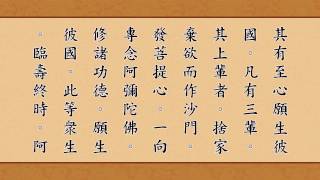 其有至心願生彼
國。凡有三輩。
其上輩者。捨家
棄欲而作沙門。
發菩提心。一向
專念阿彌陀佛。
修諸功德。願生
彼國。此等眾生
。臨壽終時。阿